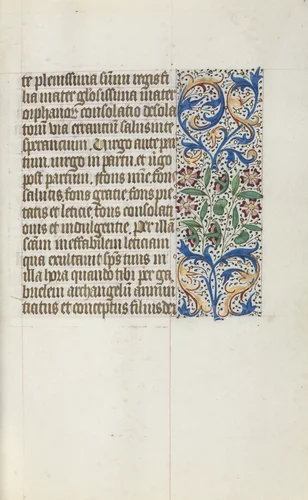 te plenissima sūmi regis fi
lia mater gl'osissima mater
orphanor̄ consolatio desola
torū via errancium salus in te
sperancium. Uirgo ante par
tum. uirgo in partu. et u'go
post partum. ffons mīe. fons
salutis. fons gracie. fons pie
tatis et leticie. fons consolati
onis et indulgentie. Per illā
scām ineffabilem leticiam
qua exultauit sp̄s tuus in
illa hora quando tibi per ga
brielem archangelū annun
ciatus et conceptus filius dei